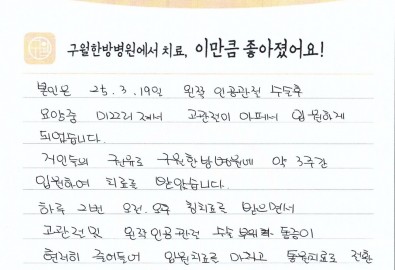 구월한방병원에서 치료, 이만큼 좋아졌어요!
본인은 25.3.19일 왼쪽 인공관절 수술후
요양중 미끄러져서 고관절이 아파서 입원하게
되었습니다.
지인의 권유로 구월한방병원에 약 3주간
입원하여 치료를 받았습니다.
하루 2번 오전.오후 침치료를 받으면서
고관절 및 왼쪽인공관절 수술 부위의 통증이
현저히 줄어들어 입원치료를 마치고 통원치료로 전환